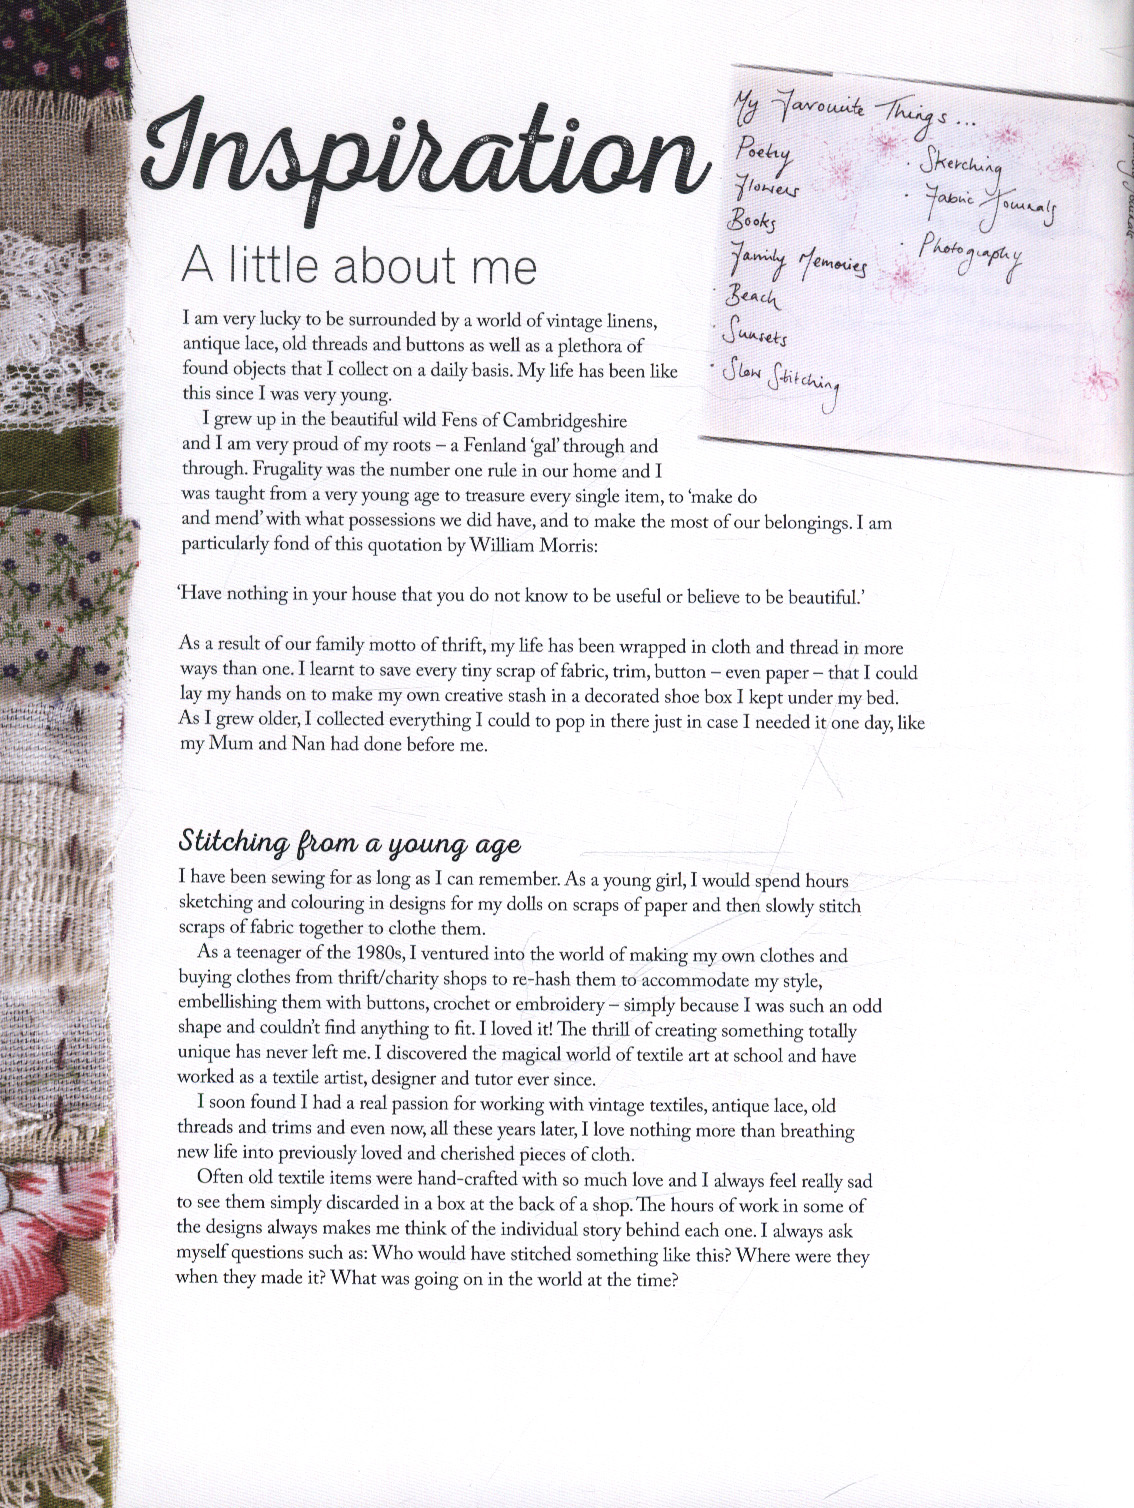 Inspiration
A little about me
I am very lucky to be surrounded by a world of vintage linens,
antique lace, old threads and buttons as well as a plethora of
found objects that I collect on a daily basis. My life has been like
this since I was very young.
I grew up in the beautiful wild Fens of Cambridgeshire
and I am very proud of my roots – a Fenland ‘gal’ through and
through. Frugality was the number one rule in our home and I
was taught from a very young age to treasure every single item, to ‘make do
and mend’ with what possessions we did have, and to make the most of our belongings. I am
particularly fond of this quotation by William Morris:
‘Have nothing in your house that you do not know to be useful or believe to be beautiful.’
As a result of our family motto of thrift, my life has been wrapped in cloth and thread in more
ways than one. I learnt to save every tiny scrap of fabric, trim, button – even paper – that I could
lay my hands on to make my own creative stash in a decorated shoe box I kept under my bed.
As I grew older, I collected everything I could to pop in there just in case I needed it one day, like
my Mum and Nan had done before me.
Stitching from a young age
I have been sewing for as long as I can remember. As a young girl, I would spend hours
sketching and colouring in designs for my dolls on scraps of paper and then slowly stitch
scraps of fabric together to clothe them.
As a teenager of the 1980s, I ventured into the world of making my own clothes and
buying clothes from thrift/charity shops to re-hash them to accommodate my style,
embellishing them with buttons, crochet or embroidery – simply because I was such an odd
shape and couldn’t find anything to fit. I loved it! The thrill of creating something totally
unique has never left me. I discovered the magical world of textile art at school and have
worked as a textile artist, designer and tutor ever since.
I soon found I had a real passion for working with vintage textiles, antique lace, old
threads and trims and even now, all these years later, I love nothing more than breathing
new life into previously loved and cherished pieces of cloth.
Often old textile items were hand-crafted with so much love and I always feel really sad
to see them simply discarded in a box at the back of a shop. The hours of work in some of
the designs always makes me think of the individual story behind each one. I always ask
myself questions such as: Who would have stitched something like this? Where were they
when they made it? What was going on in the world at the time?
My Favourite Things...
Poetry
Flowers
Books
Family Memories
· Beach
· Sunsets
· Slow Stitching
· Sketching
· Fabric Journals
· Photography